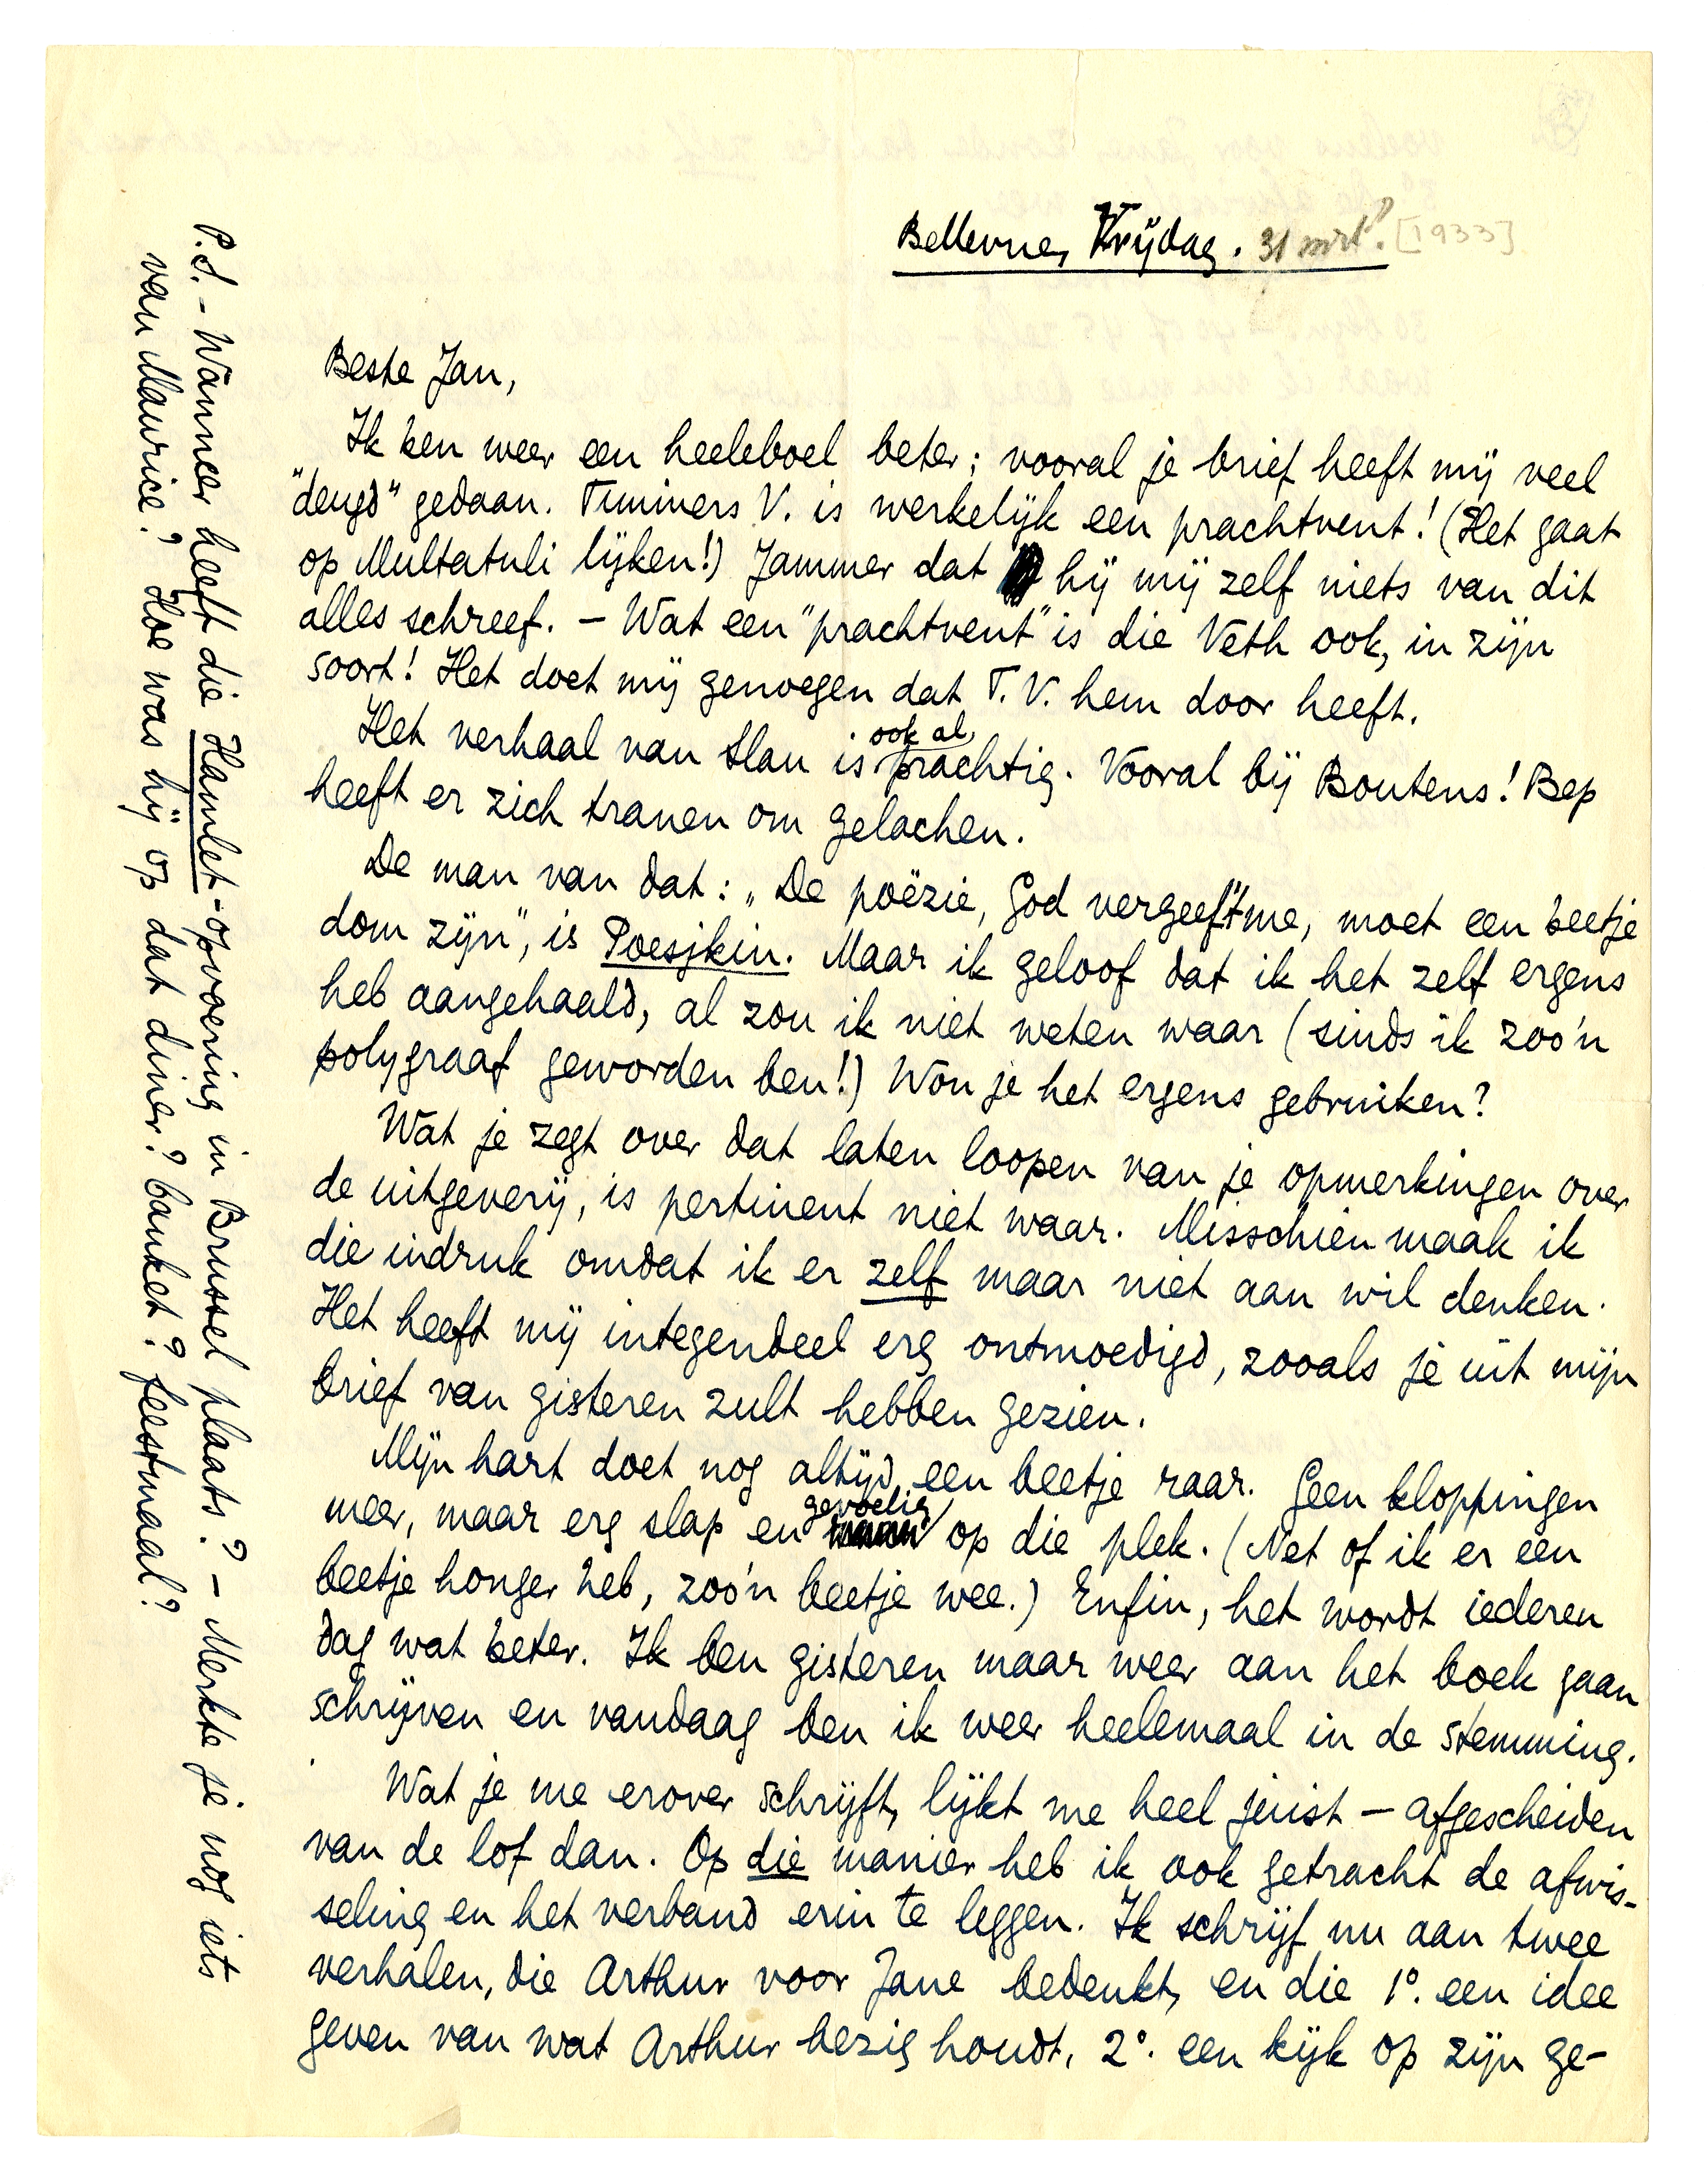 Bellevue, Vrijdag. 31 mrt? [1933]
Beste Jan,
Ik ben weer een heeleboel beter; vooral je brief heeft mij veel
"deugd" gedaan. Timmers V. is werkelijk een prachtvent! (Het gaat
op Multatuli lijken!) Jammer dat hij mij zelf niets van dit
alles schreef. – Wat een "prachtvent" is die Veth ook, in zijn
soort! Het doet mij genoegen dat T.V. hem door heeft.
Het verhaal van Slau is ook al prachtig. Vooral bij Boutens! Bep
heeft er zich tranen om gelachen.
De man van dat: „De poëzie, God vergeef 't me, moet een beetje
dom zijn", is Poesjkin. Maar ik geloof dat ik het zelf ergens
heb aangehaald, al zou ik niet weten waar (sinds ik zoo'n
polygraaf geworden ben!) Wou je het ergens gebruiken?
Wat je zegt over dat laten loopen van je opmerkingen over
de uitgeverij, is pertinent niet waar. Misschien maak ik
die indruk omdat ik er zelf maar niet aan wil denken.
Het heeft mij integendeel erg ontmoedigd, zooals je uit mijn
brief van gisteren zult hebben gezien.
Mijn hart doet nog altijd een beetje raar. Geen kloppingen
meer, maar erg slap en gevoelig op die plek. (Net of ik er een
beetje honger heb, zoo'n beetje wee.) Enfin, het wordt iederen
dag wat beter. Ik ben gisteren maar weer aan het boek gaan
schrijven en vandaag ben ik weer heelemaal in de stemming.
Wat je me erover schrijft, lijkt me heel juist – afgescheiden
van de lof dan. Op die manier heb ik ook getracht de afwis-
seling en het verband erin te leggen. Ik schrijf nu aan twee
verhalen, die Arthur voor Jane bedenkt, en die 1°. een idee
geven van wat Arthur bezig houdt, 2°. een kijk op zijn ge-
P.S. – Wanneer heeft die Hamlet-opvoering in Brussel plaats? – Merkte je nog iets
van Maurice? Hoe was hij op dat diner? banket? feestmaal?